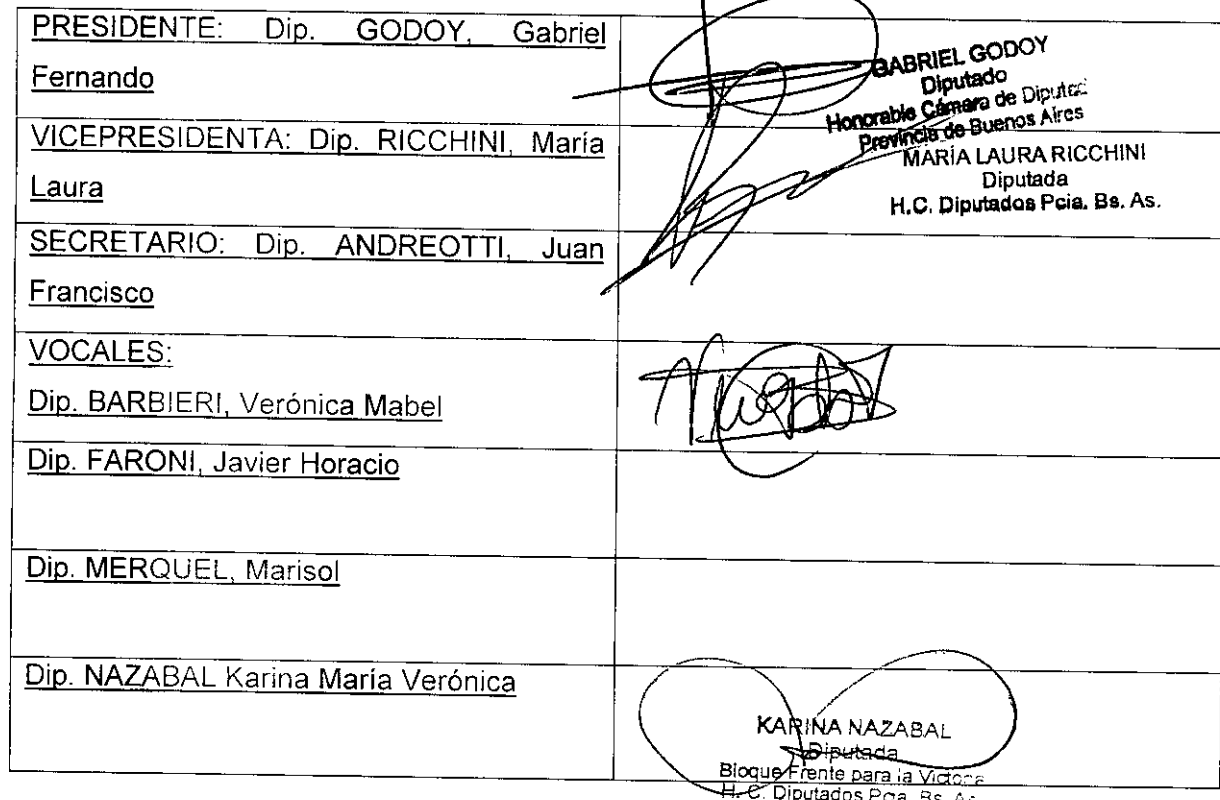 PRESIDENTE: Dip. GODOY, Gabriel
Fernando
GABRIEL GODOY
Diputado
Honorable Cámara de Diputad
Provincia de Buenos Aires
VICEPRESIDENTA: Dip. RICCHINI, María
Laura
MARÍA LAURA RICCHINI
Diputada
H.C. Diputados Pcia. Bs. As.
SECRETARIO: Dip. ANDREOTTI, Juan
Francisco
VOCALES:
Dip. BARBIERI, Verónica Mabel
Dip. FARONI, Javier Horacio
Dip. MERQUEL, Marisol
Dip. NAZABAL Karina María Verónica
KARINA NAZABAL
Diputada
Bloque Frente para la Victoria
H. C. Diputados Pcia. Bs. As.